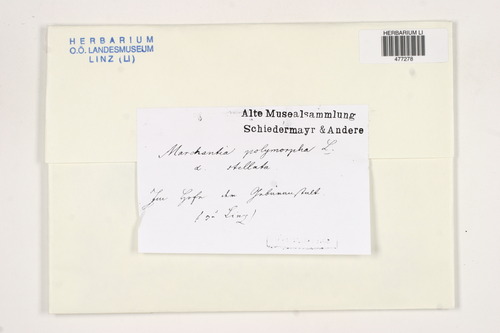 HERBARIUM
O.Ö. LANDESMUSEUM
LINZ (LI)
HERBARIUM LI
477278
Alte Musealsammlung
Schiedermayr & Andere
Marchantia polymorpha L.
α. stellata
Im Hofe der Gebäranstalt
(zu Linz)